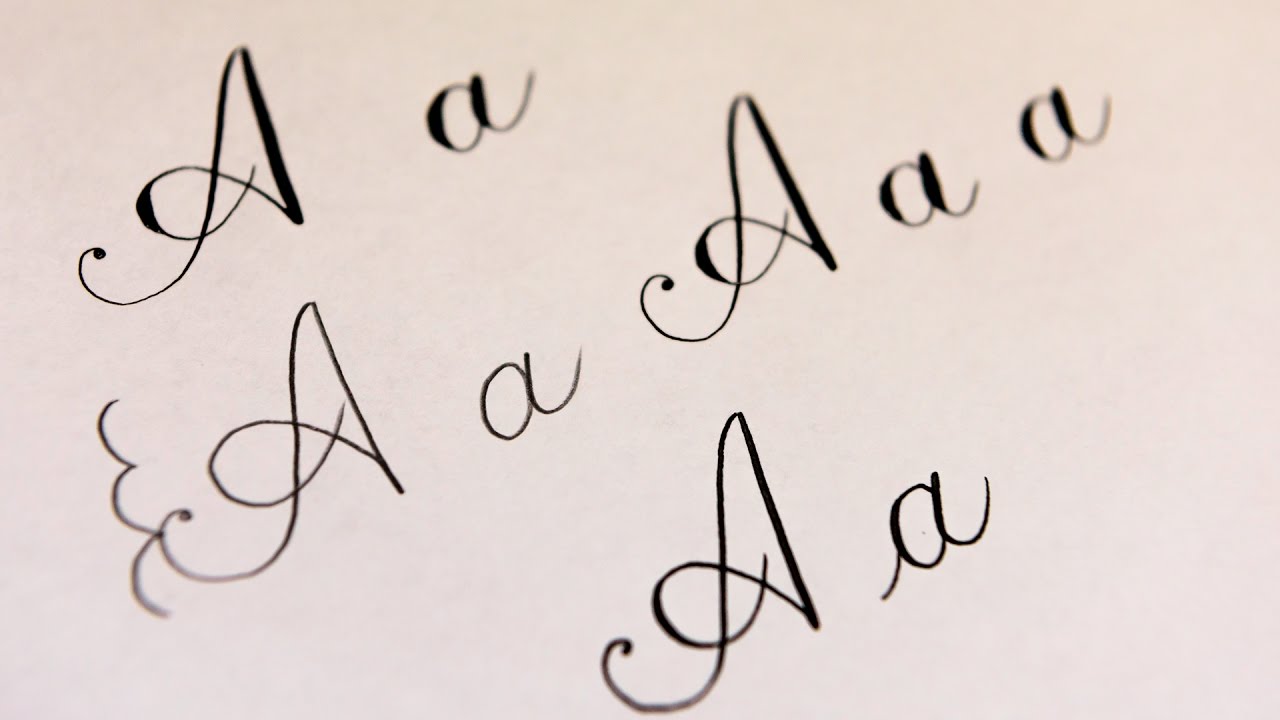 A a
A a a
A a
A a